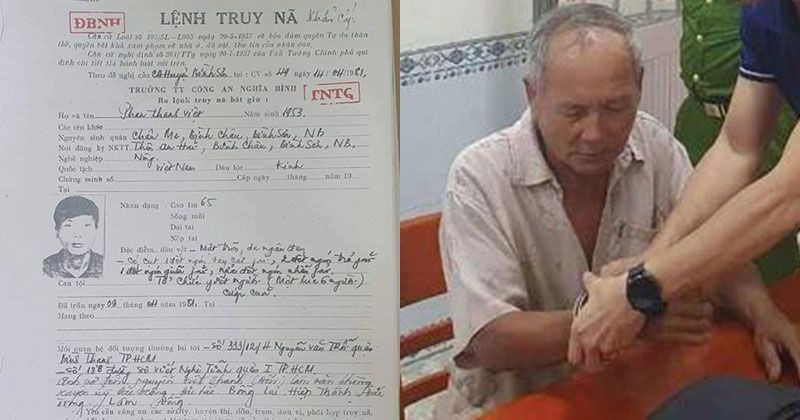 ĐBNH
LỆNH TRUY NÃ Khẩn Cấp
Căn cứ Luật số 103/SL - L005 ngày 20-5-1957 về bảo đảm quyền Tự do thân
thể, quyền bất khả xâm phạm về nhà ở, đồ vật, thư tín của nhân dân.
Căn cứ nghị định số 301/TTg ngày 20-7-1957 của Thủ Tướng Chính phủ qui
định chi tiết thi hành luật nói trên.
Theo đề nghị của CA Huyện Bình Sơn tại : CV số 49 ngày 14/04/1981,
TRƯỞNG TY CÔNG AN NGHĨA BÌNH
Ra lệnh truy nã bắt giữ :
TNTG
Họ và tên Phan thanh Việt Năm sinh 1953.
Các tên khác
Nguyên sinh quán Châu Me, Bình Châu, Bình Sơn, NB
Nơi đăng ký NKTT. Thôn An Hải, Bình Châu, Bình Sơn, NB.
Nghề nghiệp Nông.
Quốc tịch Việt Nam Dân tộc Kinh
Chứng minh số Cấp ngày tháng năm 19
Tại
Nhân dạng : Cao 1m 65
Sống mũi
Dái tai
Nếp tai
Đặc điểm, dấu vết - Mặt tròn, da ngăm đen
- Cố cụt 1 đốt ngón tay
1 đốt ngón giữa
Can tội Tổ chức giết người (Một lúc 6 người)
Cướp của.
Đã trốn ngày 09 tháng 04 năm 1981. Tại
Mang theo
Mối quan hệ đối tượng thường lui tới - số 333/12/H Nguyễn văn Trỗi quận
TP.HCM
- số đường Xô viết Nghệ Tĩnh quận I TP.HCM.
Lâm Đồng
Yêu cầu công an các sở, ty, huyện thị, đồn, trạm, đơn vị, phối hợp truy nã,